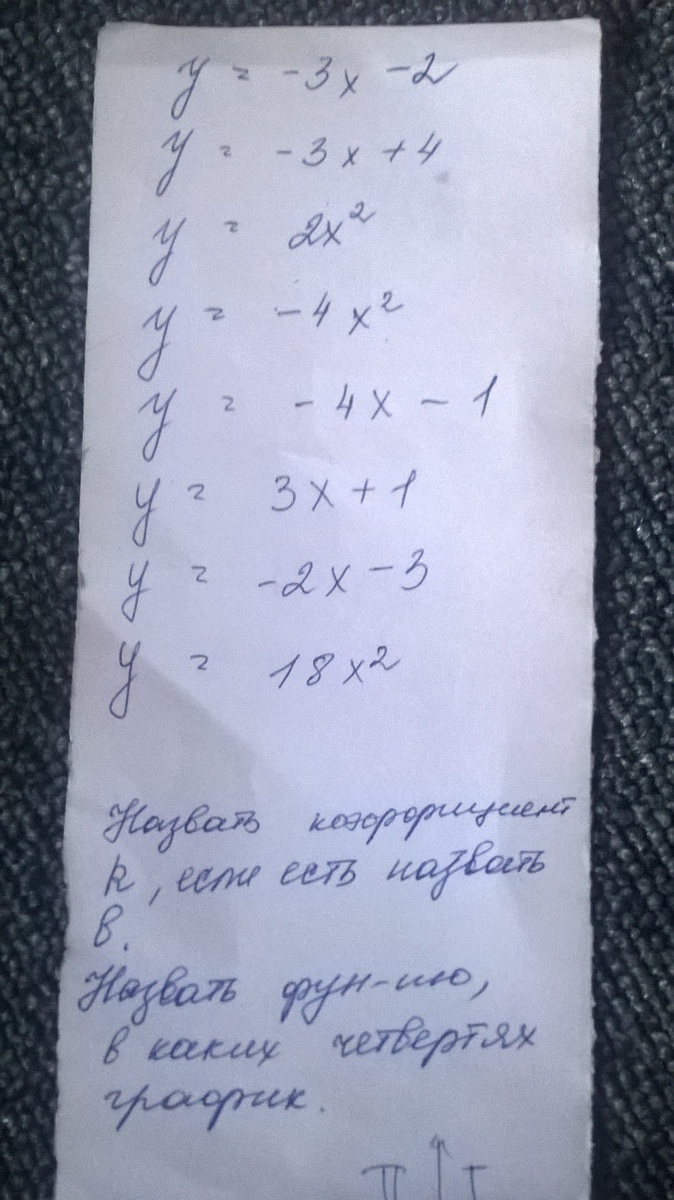 y = -3x -2
y = -3x +4
y = 2x²
y = -4x²
y = -4x - 1
y = 3x + 1
y = -2x -3
y = 18x²
Назвать коэффициент
k, если есть назвать
в.
Назвать фун-ию,
в каких четвертях
график.
II I